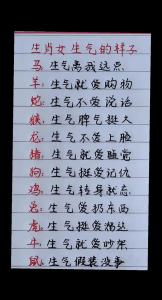 生肖女生气的样子
马: 生气离我远点
羊: 生气就爱购物
蛇: 生气不爱说话
猴: 生气脾气挺大
龙: 生气不爱上脸
猪: 生气就爱睡觉
狗: 生气挺爱记仇
鸡: 生气转身就忘
兔: 生气爱扔东西
虎: 生气挺爱
牛: 生气就爱吵架
鼠: 生气假装没事